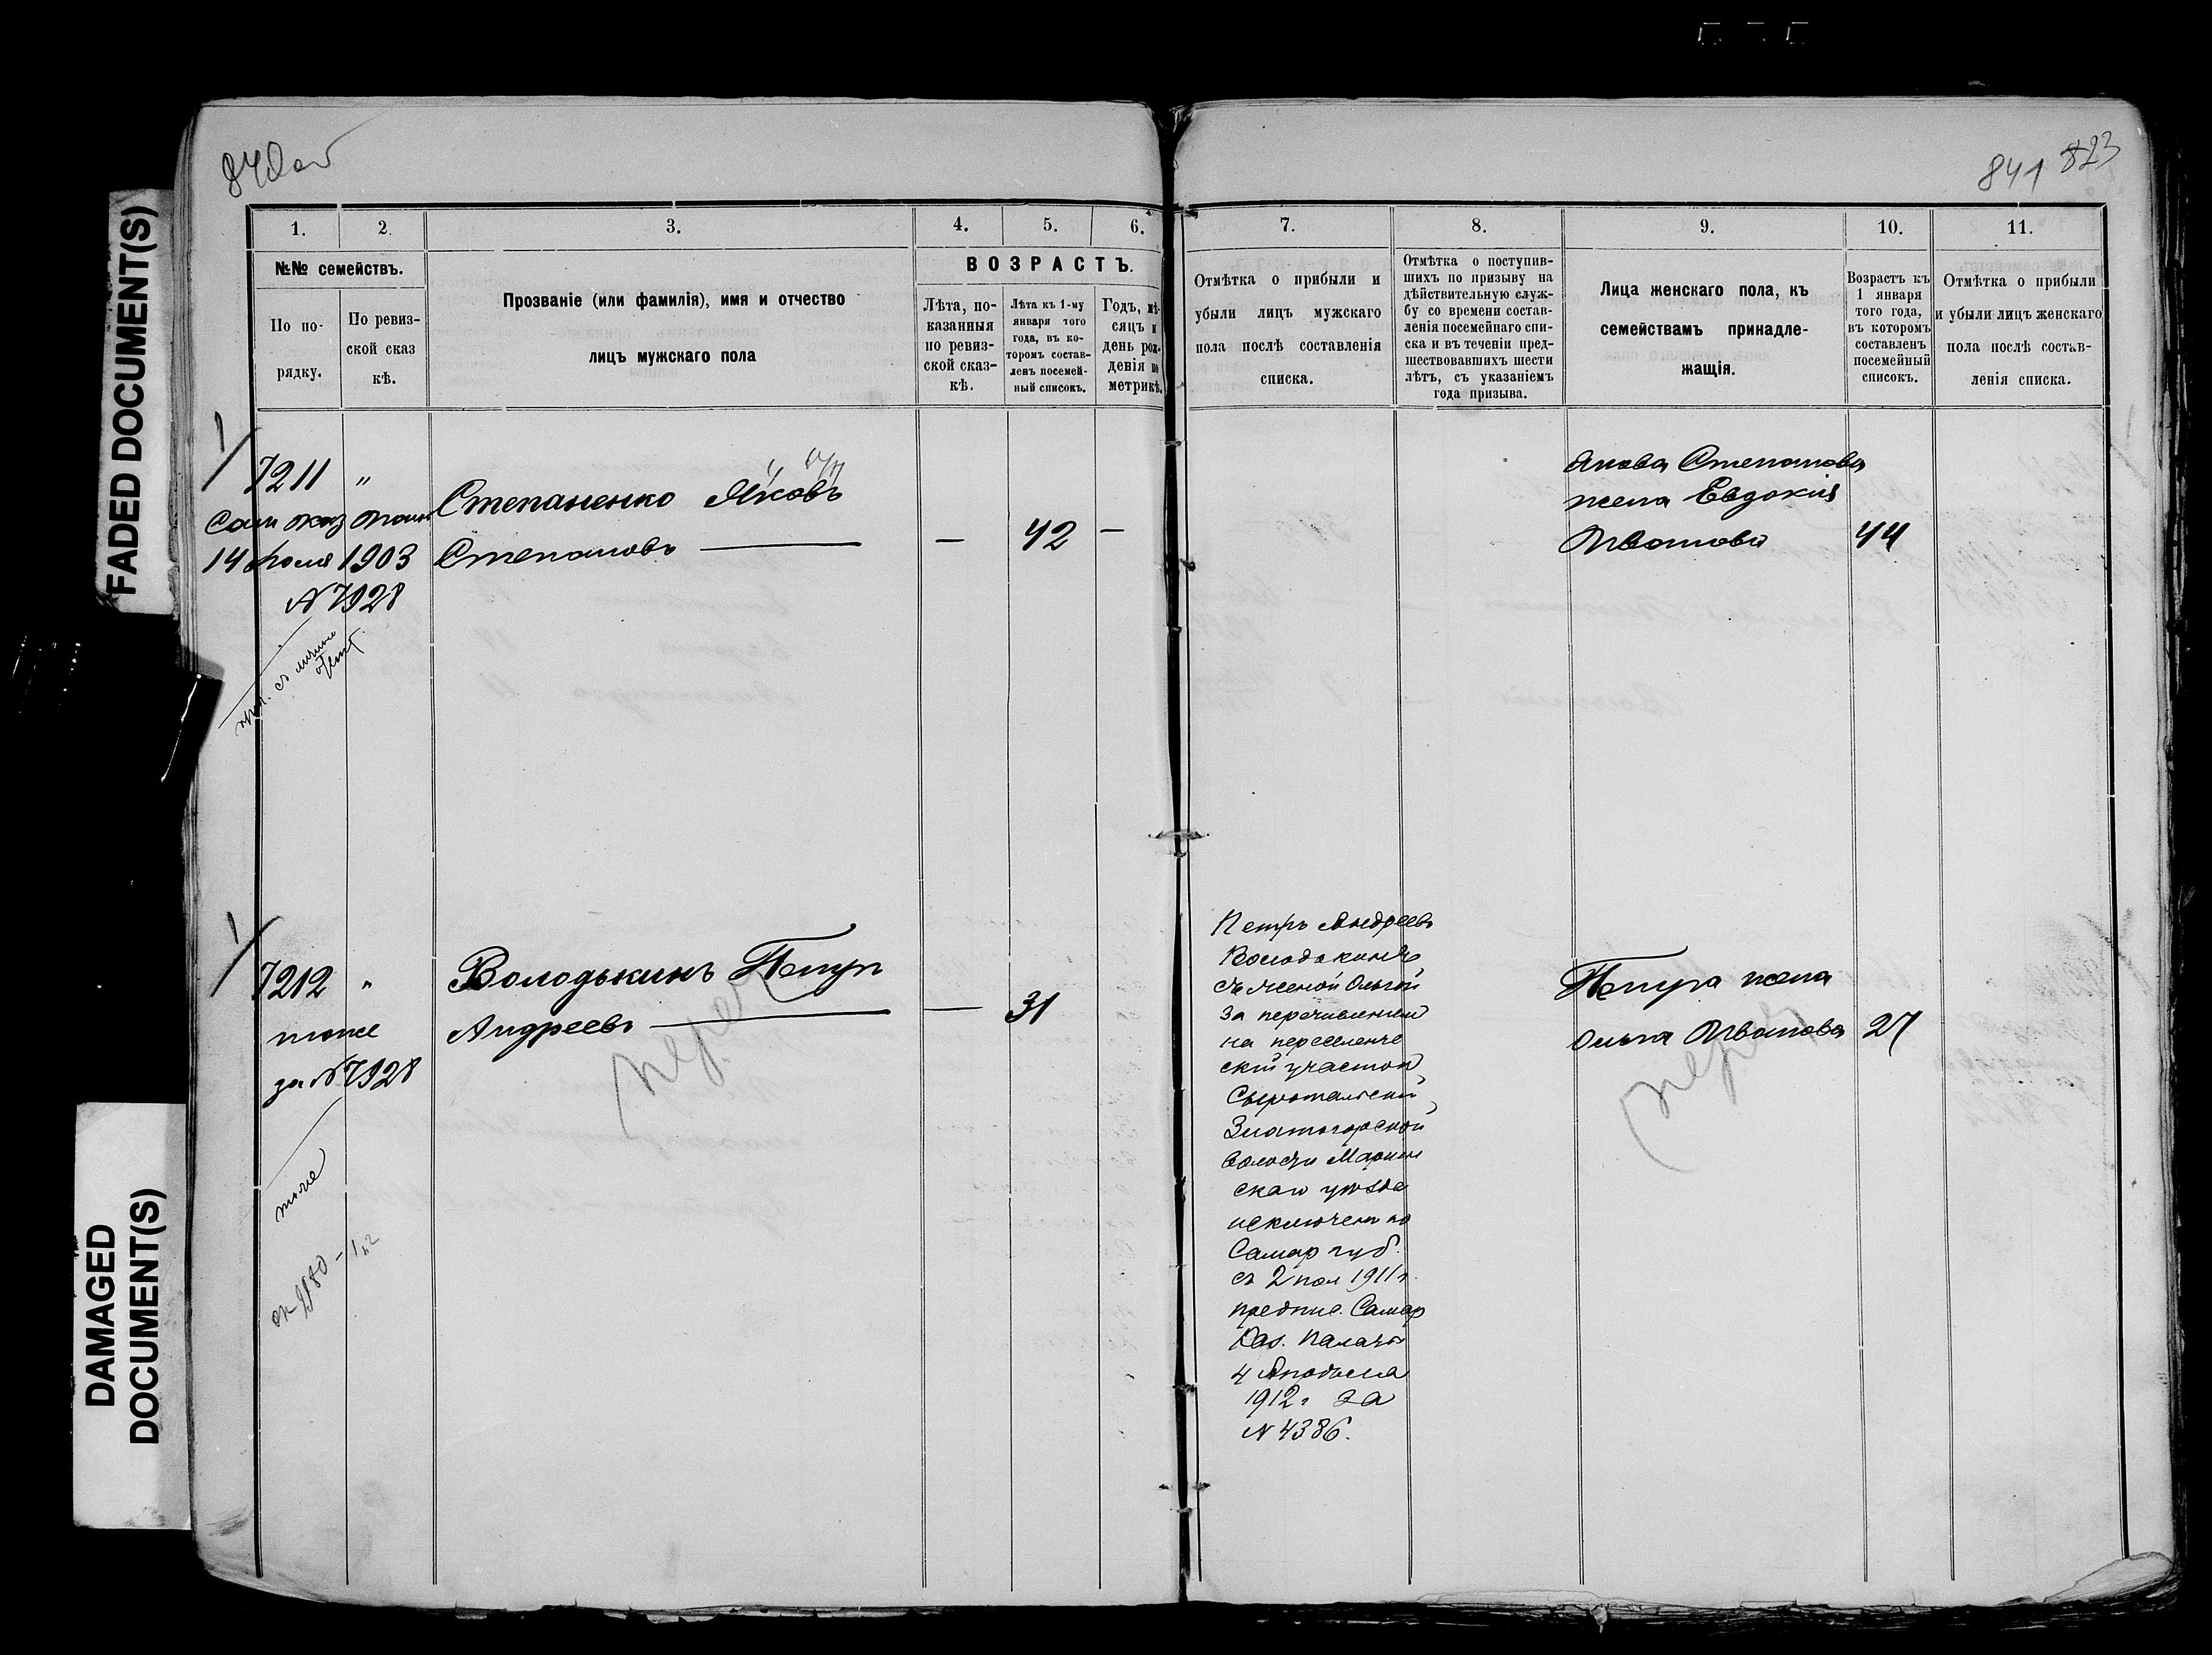 840 об
841 823
1. 2. 3. 4. 5. 6. 7. 8. 9. 10. 11.
№№ семействъ.
По по-
рядку.
По ревиз-
ской сказ
кѣ.
Прозваніе (или фамилія), имя и отчество
лицъ мужскаго пола
ВОЗРАСТЪ.
Лѣта, по-
казанныя
по ревиз-
ской сказ-
кѣ.
Лѣта къ 1-му
января того
года, въ ко-
торомъ состав-
ленъ посемей-
ный списокъ.
Годъ, мѣ-
сяцъ и
день рож-
денія по
метрикѣ.
Отмѣтка о прибыли и
убыли лицъ мужскаго
пола послѣ составленія
списка.
Отмѣтка о поступив-
шихъ по призыву на
дѣйствительную служ-
бу со времени состав-
ленія посемейнаго спи-
ска и въ теченіи пред-
шествовавшихъ шести
лѣтъ, съ указаніемъ
года призыва.
Лица женскаго пола, къ
семействамъ принадле-
жащія.
Возрастъ къ
1 января
того года,
въ которомъ
составленъ
посемейный
списокъ.
Отмѣтка о прибыли
и убыли лицъ женскаго
пола послѣ состав-
ленія списка.
1
7211 "
Сам каз пал
14 Іюля 1903
N 7928
Степаненко Яковъ
Степановъ — — 42 —
Якова Степанова
жена Евдокія
Иванова 44
1
7212 "
тоже
за N 7928
тоже
Володькинъ Петръ
Андреевъ — — 31
переч
Петръ Андреевъ
Володькинъ
съ женой Ольгой
За перечисленіем
на переселенче
скій участок
Златогорской
волости Мариин
скаго уѣзда
исключен по
Самар губ.
съ 2 пол 1911 г.
предпис. Самар
Каз. Палаты
4
1912 г за
N 4386.
Петра жена
Ольга Иванова 27
переч
FADED DOCUMENT(S)
DAMAGED
DOCUMENT(S)